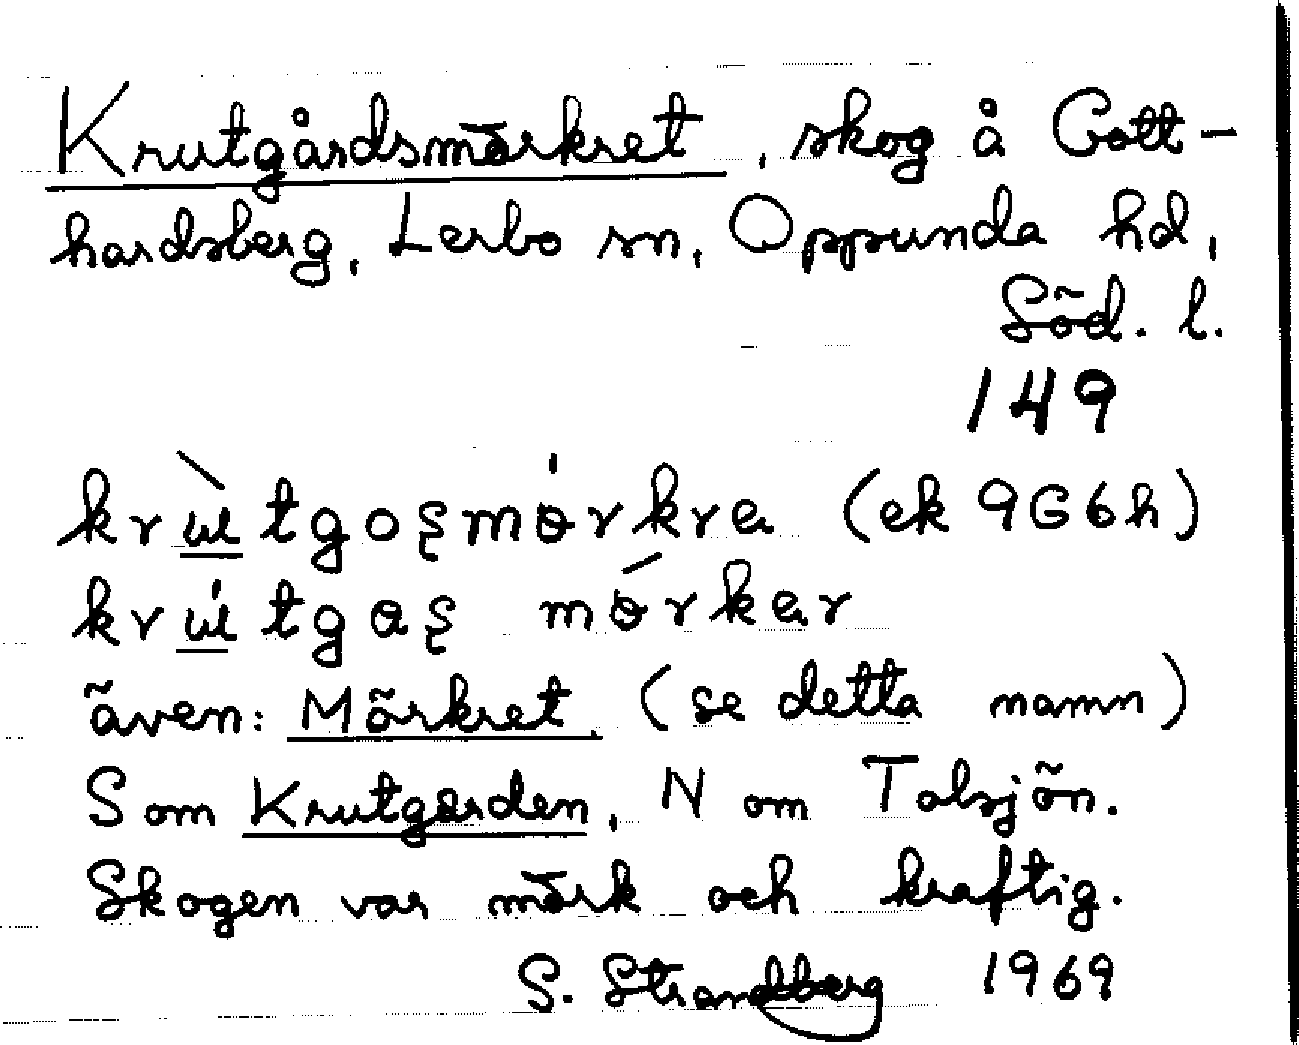 Krutgårdsmörkret, skog å Gott-
hardsberg, Lerbo sn, Oppunda hd,
Söd. l.
149
krùtgoşmörkra (ek 9G6h)
krútgaş mörkar
även: Mörkret. (se detta namn)
S om Krutgården, N om Talsjön.
Skogen var mörk och kraftig.
S. Strandberg 1969